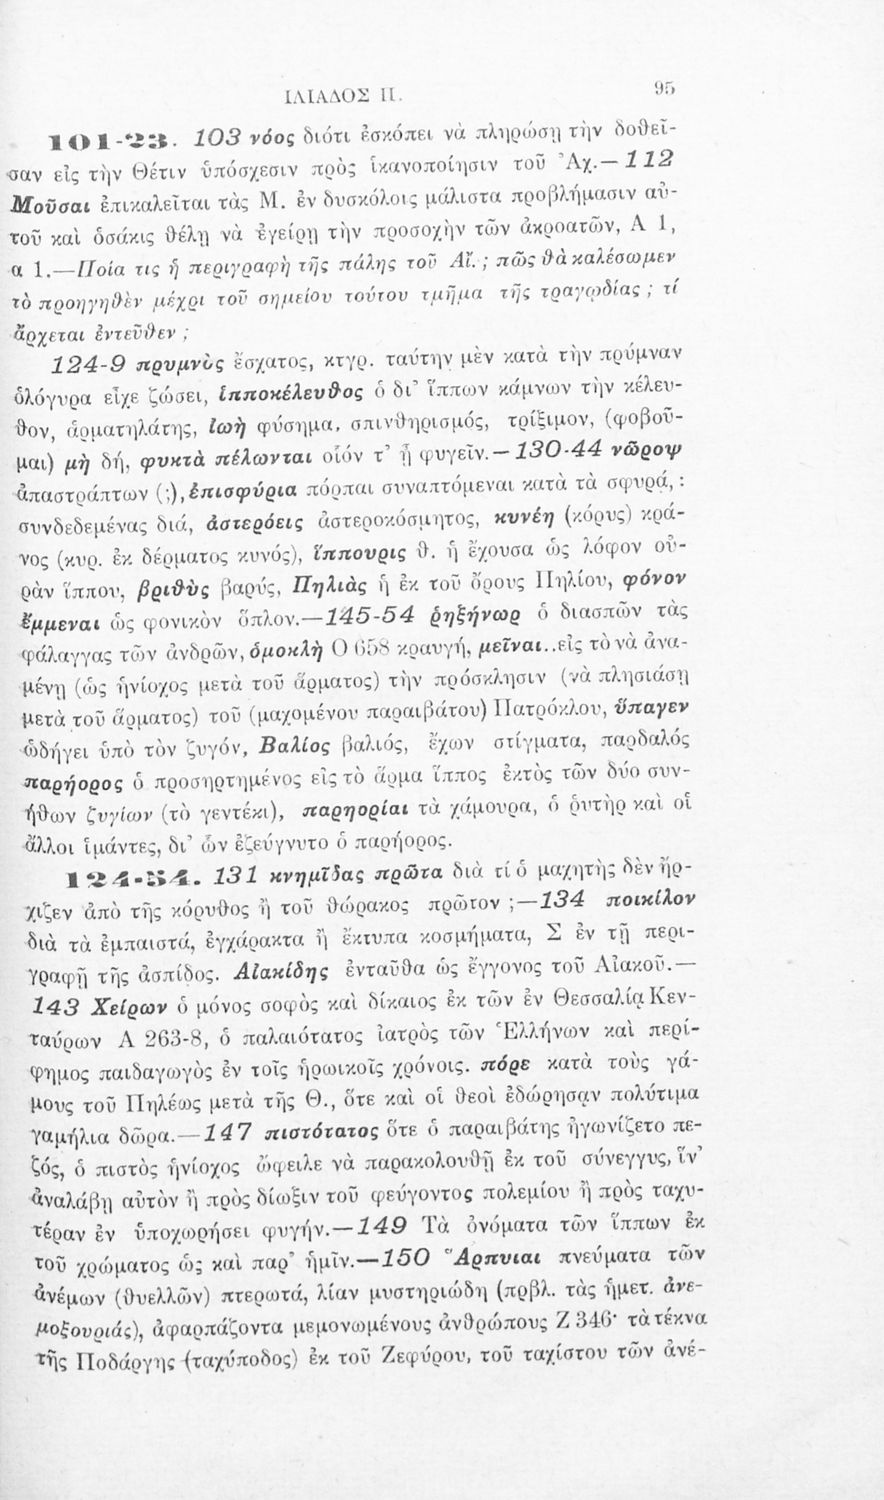 ΙΛΙΑΔΟΣ Π.
95
101-23. 103 νόος διότι ἐσκόπει νὰ πληρώσῃ τὴν δοθεῖ-
σαν εἰς τὴν Θέτιν ὑπόσχεσιν πρὸς ἱκανοποίησιν τοῦ Ἀχ.—112
Μοῦσαι ἐπικαλεῖται τὰς Μ. ἐν δυσκόλοις μάλιστα προβλήμασιν αὐ-
τοῦ καὶ ὁσάκις θέλῃ νὰ ἐγείρῃ τὴν προσοχὴν τῶν ἀκροατῶν, Α 1,
α 1.—Ποία τις ἡ περιγραφὴ τῆς πάλης τοῦ Αἴ.; πῶς θὰ καλέσωμεν
τὸ προηγηθὲν μέχρι τοῦ σημείου τούτου τμῆμα τῆς τραγῳδίας; τί
ἄρχεται ἐντεῦθεν;
124-9 πρυμνὸς ἔσχατος, κτγρ. ταύτην μὲν κατὰ τὴν πρύμναν
ὁλόγυρα εἶχε ζώσει, ἱπποκέλευθος ὁ δι' ἵππων κάμνων τὴν κέλευ-
θον, ἁρματηλάτης, ἰωὴ φύσημα, σπινθηρισμός, τρίξιμον, (φοβοῦ-
μαι) μὴ δή, φυκτὰ πέλωνται οἷόν τ' ᾖ φυγεῖν.—130-44 νῶροψ
ἀπαστράπτων (;), ἐπισφύρια πόρπαι συναπτόμεναι κατὰ τὰ σφυρά,:
συνδεδεμένας διά, ἀστερόεις ἀστεροκόσμητος, κυνέη (κόρυς) κρά-
νος (κυρ. ἐκ δέρματος κυνός), ἵππουρις θ. ἡ ἔχουσα ὡς λόφον οὐ-
ρὰν ἵππου, βριθὺς βαρύς, Πηλιὰς ἡ ἐκ τοῦ ὄρους Πηλίου, φόνον
ἔμμεναι ὡς φονικὸν ὅπλον.—145-54 ῥηξήνωρ ὁ διασπῶν τὰς
φάλαγγας τῶν ἀνδρῶν, ὁμοκλὴ Ο 658 κραυγή, μεῖναι..εἰς τὸ νὰ ἀνα-
μένῃ (ὡς ἡνίοχος μετὰ τοῦ ἅρματος) τὴν πρόσκλησιν (νὰ πλησιάσῃ
μετὰ τοῦ ἅρματος) τοῦ (μαχομένου παραιβάτου) Πατρόκλου, ὕπαγεν
ὡδήγει ὑπὸ τὸν ζυγόν, Βαλίος βαλιός, ἔχων στίγματα, παρδαλός
παρήορος ὁ προσηρτημένος εἰς τὸ ἅρμα ἵππος ἐκτὸς τῶν δύο συν-
ήθων ζυγίων (τὸ γεντέκι), παρηορίαι τὰ χάμουρα, ὁ ῥυτὴρ καὶ οἱ
ἄλλοι ἱμάντες, δι' ὧν ἐζεύγνυτο ὁ παρήορος.
124-54. 131 κνημῖδας πρῶτα διὰ τί ὁ μαχητὴς δὲν ἤρ-
χιζεν ἀπὸ τῆς κόρυθος ἢ τοῦ θώρακος πρῶτον;—134 ποικίλον
διὰ τὰ ἐμπαιστά, ἐγχάρακτα ἢ ἔκτυπα κοσμήματα, Σ ἐν τῇ περι-
γραφῇ τῆς ἀσπίδος. Αἰακίδης ἐνταῦθα ὡς ἔγγονος τοῦ Αἰακοῦ.—
143 Χείρων ὁ μόνος σοφὸς καὶ δίκαιος ἐκ τῶν ἐν Θεσσαλίᾳ Κεν-
ταύρων Α 263-8, ὁ παλαιότατος ἰατρὸς τῶν Ἑλλήνων καὶ περί-
φημος παιδαγωγὸς ἐν τοῖς ἡρωικοῖς χρόνοις. πόρε κατὰ τοὺς γά-
μους τοῦ Πηλέως μετὰ τῆς Θ., ὅτε καὶ οἱ θεοὶ ἐδώρησαν πολύτιμα
γαμήλια δῶρα.—147 πιστότατος ὅτε ὁ παραιβάτης ἠγωνίζετο πε-
ζός, ὁ πιστὸς ἡνίοχος ὤφειλε νὰ παρακολουθῇ ἐκ τοῦ σύνεγγυς, ἵν'
ἀναλάβῃ αὐτὸν ἢ πρὸς δίωξιν τοῦ φεύγοντος πολεμίου ἢ πρὸς ταχυ-
τέραν ἐν ὑποχωρήσει φυγήν.—149 Τὰ ὀνόματα τῶν ἵππων ἐκ
τοῦ χρώματος ὡς καὶ παρ' ἡμῖν.—150 Ἅρπυιαι πνεύματα τῶν
ἀνέμων (θυελλῶν) πτερωτά, λίαν μυστηριώδη (πρβλ. τὰς ἡμετ. ἀνε-
μοξουριάς), ἀφαρπάζοντα μεμονωμένους ἀνθρώπους Ζ 346· τὰ τέκνα
τῆς Ποδάργης (ταχύποδος) ἐκ τοῦ Ζεφύρου, τοῦ ταχίστου τῶν ἀνέ-